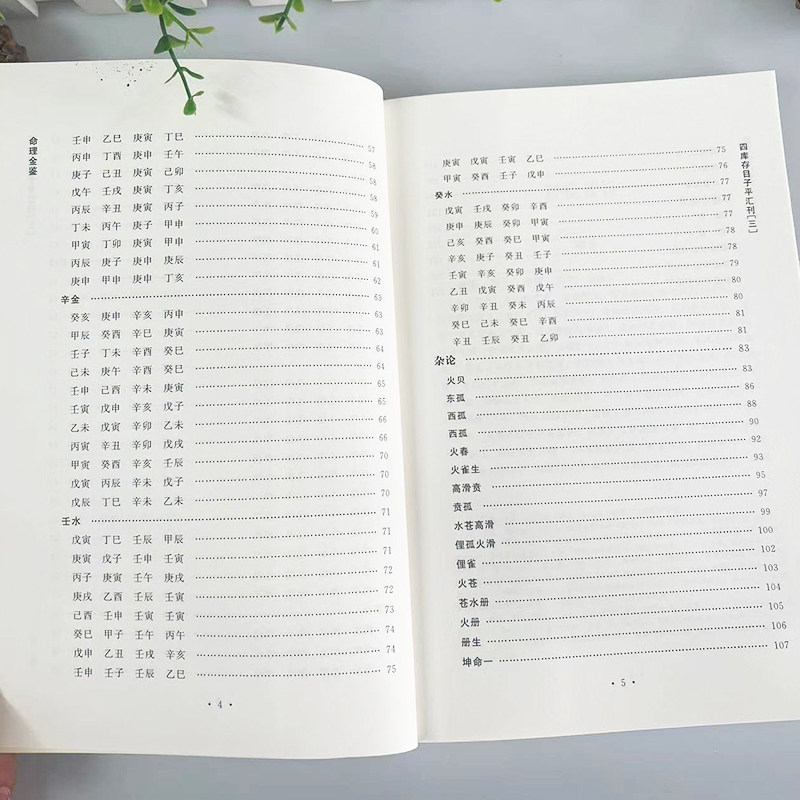 命理金鉴
壬申 乙巳 庚寅 丁巳 57
丙申 丁酉 庚申 壬午 58
庚子 己丑 庚寅 己卯 58
戊午 壬戌 庚寅 丁亥 58
丙辰 辛丑 庚寅 丙子 59
丁未 丙午 庚子 甲申 60
甲寅 丁卯 庚寅 甲申 61
丙辰 庚子 庚申 庚辰 61
庚申 甲申 庚申 丁亥 62
辛金 63
癸亥 庚申 辛亥 丙申 63
甲辰 癸酉 辛巳 庚寅 63
壬子 丁未 辛酉 癸巳 64
己未 庚午 辛酉 癸巳 64
壬申 己酉 辛未 庚寅 65
壬寅 戊申 辛亥 戊子 65
乙未 戊寅 辛卯 乙未 66
丙寅 辛丑 辛卯 戊戌 66
甲寅 癸酉 辛亥 壬辰 70
戊寅 丙辰 辛未 戊子 70
戊辰 丁巳 辛未 乙未 70
壬水 71
戊寅 丁巳 壬辰 甲辰 71
庚寅 戊子 壬申 壬寅 71
丙子 庚寅 壬午 庚戌 72
庚戌 乙酉 壬辰 壬寅 72
己酉 壬申 壬寅 壬寅 73
癸巳 甲子 壬午 丙午 74
戊申 乙丑 壬戌 辛亥 74
壬申 壬子 壬辰 乙巳 75
· 4 ·
四库存目子平汇刊[三]
庚寅 戊寅 壬寅 乙巳 75
甲寅 癸酉 壬子 戊申 76
癸水 77
戊寅 壬戌 癸卯 辛酉 77
庚申 庚辰 癸卯 甲寅 77
己亥 癸酉 癸巳 甲寅 78
辛亥 庚子 癸丑 壬子 78
壬寅 辛亥 癸卯 庚申 79
乙丑 戊寅 癸酉 戊午 80
辛卯 辛丑 癸未 丙辰 80
癸巳 己未 癸巳 辛酉 81
辛丑 壬辰 癸丑 乙卯 81
杂论 83
火贝 83
东孤 86
西孤 88
西孤 90
火春 92
火雀生 93
高滑贲 95
贲孤 97
水苍高滑 99
俚孤火滑 100
俚雀 102
火苍 103
苍水册 104
火册 105
册生 106
坤命一 107
· 5 ·